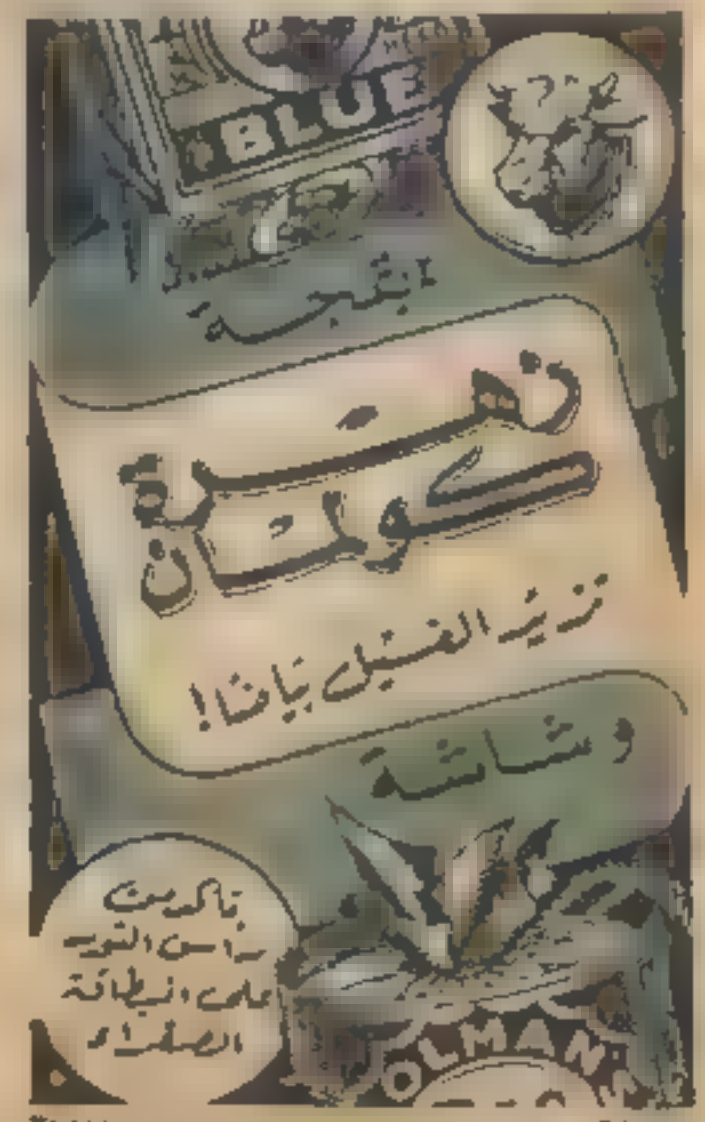 BLUE
زهرة
كولمان
تزيد الغسيل بياضا!
وشاشة
تأكد من
راس الثور
على البطاقة
الصفراء
OLMAN'